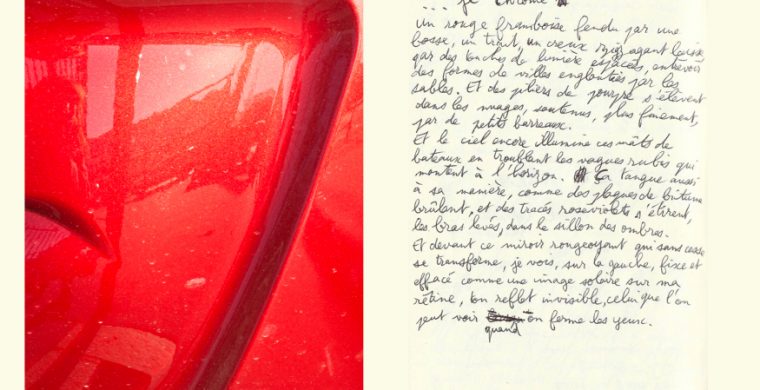 ... je chrome
Un rouge framboise fendu par une
bosse, un trait, un creux zigzagant laisse
par des touches de lumière espacées, entrevoir
des formes de villes englouties par les
sables. Et des piliers de pourpre s'élèvent
dans les nuages, soutenus, plus finement,
par de petits barreaux.
Et le ciel encore illumine ces mâts de
bateaux en troublant les vagues rubis qui
montent à l'horizon. Ça tangue aussi
à sa manière, comme des plaques de bitume
brûlant, et des tracés roseviolets s'étirent,
les bras levés, dans le sillon des ombres.
Et devant ce miroir rougeoyant qui sans cesse
se transforme, je vois, sur la gauche, fixe et
effacé comme une image solaire sur ma
rétine, ton reflet invisible, celui que l'on
peut voir quand on ferme les yeux.